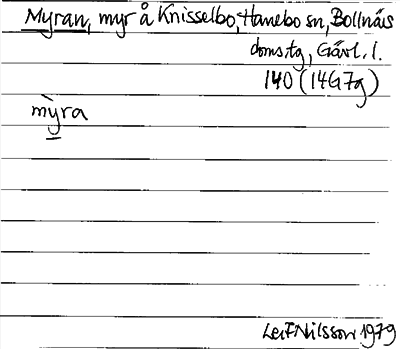 Myran, myr å Knisselbo, Hanebo sn, Bollnäs
doms.tg, Gävl. l.
140 (14G7g)
mỳra
Leif Nilsson 1979